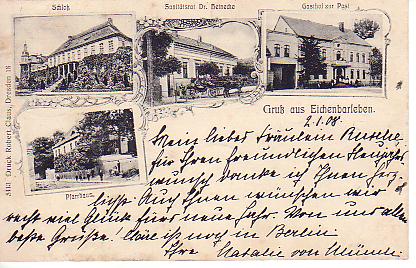 Schloß
Sanitätsrat Dr. Heinecke
Gasthof zur Post
Gruß aus Eichenbarleben.
2.1.08.
Mein liebes Fräulein
für Ihren freundlichen Neujahrs
wunsch danke ich Ihnen herz-
Pfarrhaus.
lichst. Auch Ihnen wünschen wir
recht viel Glück fürs neue Jahr. Von uns allen
beste Grüße! ist noch in Berlin
Ihre Natalie von
Druck Robert Claus, Dresden 16